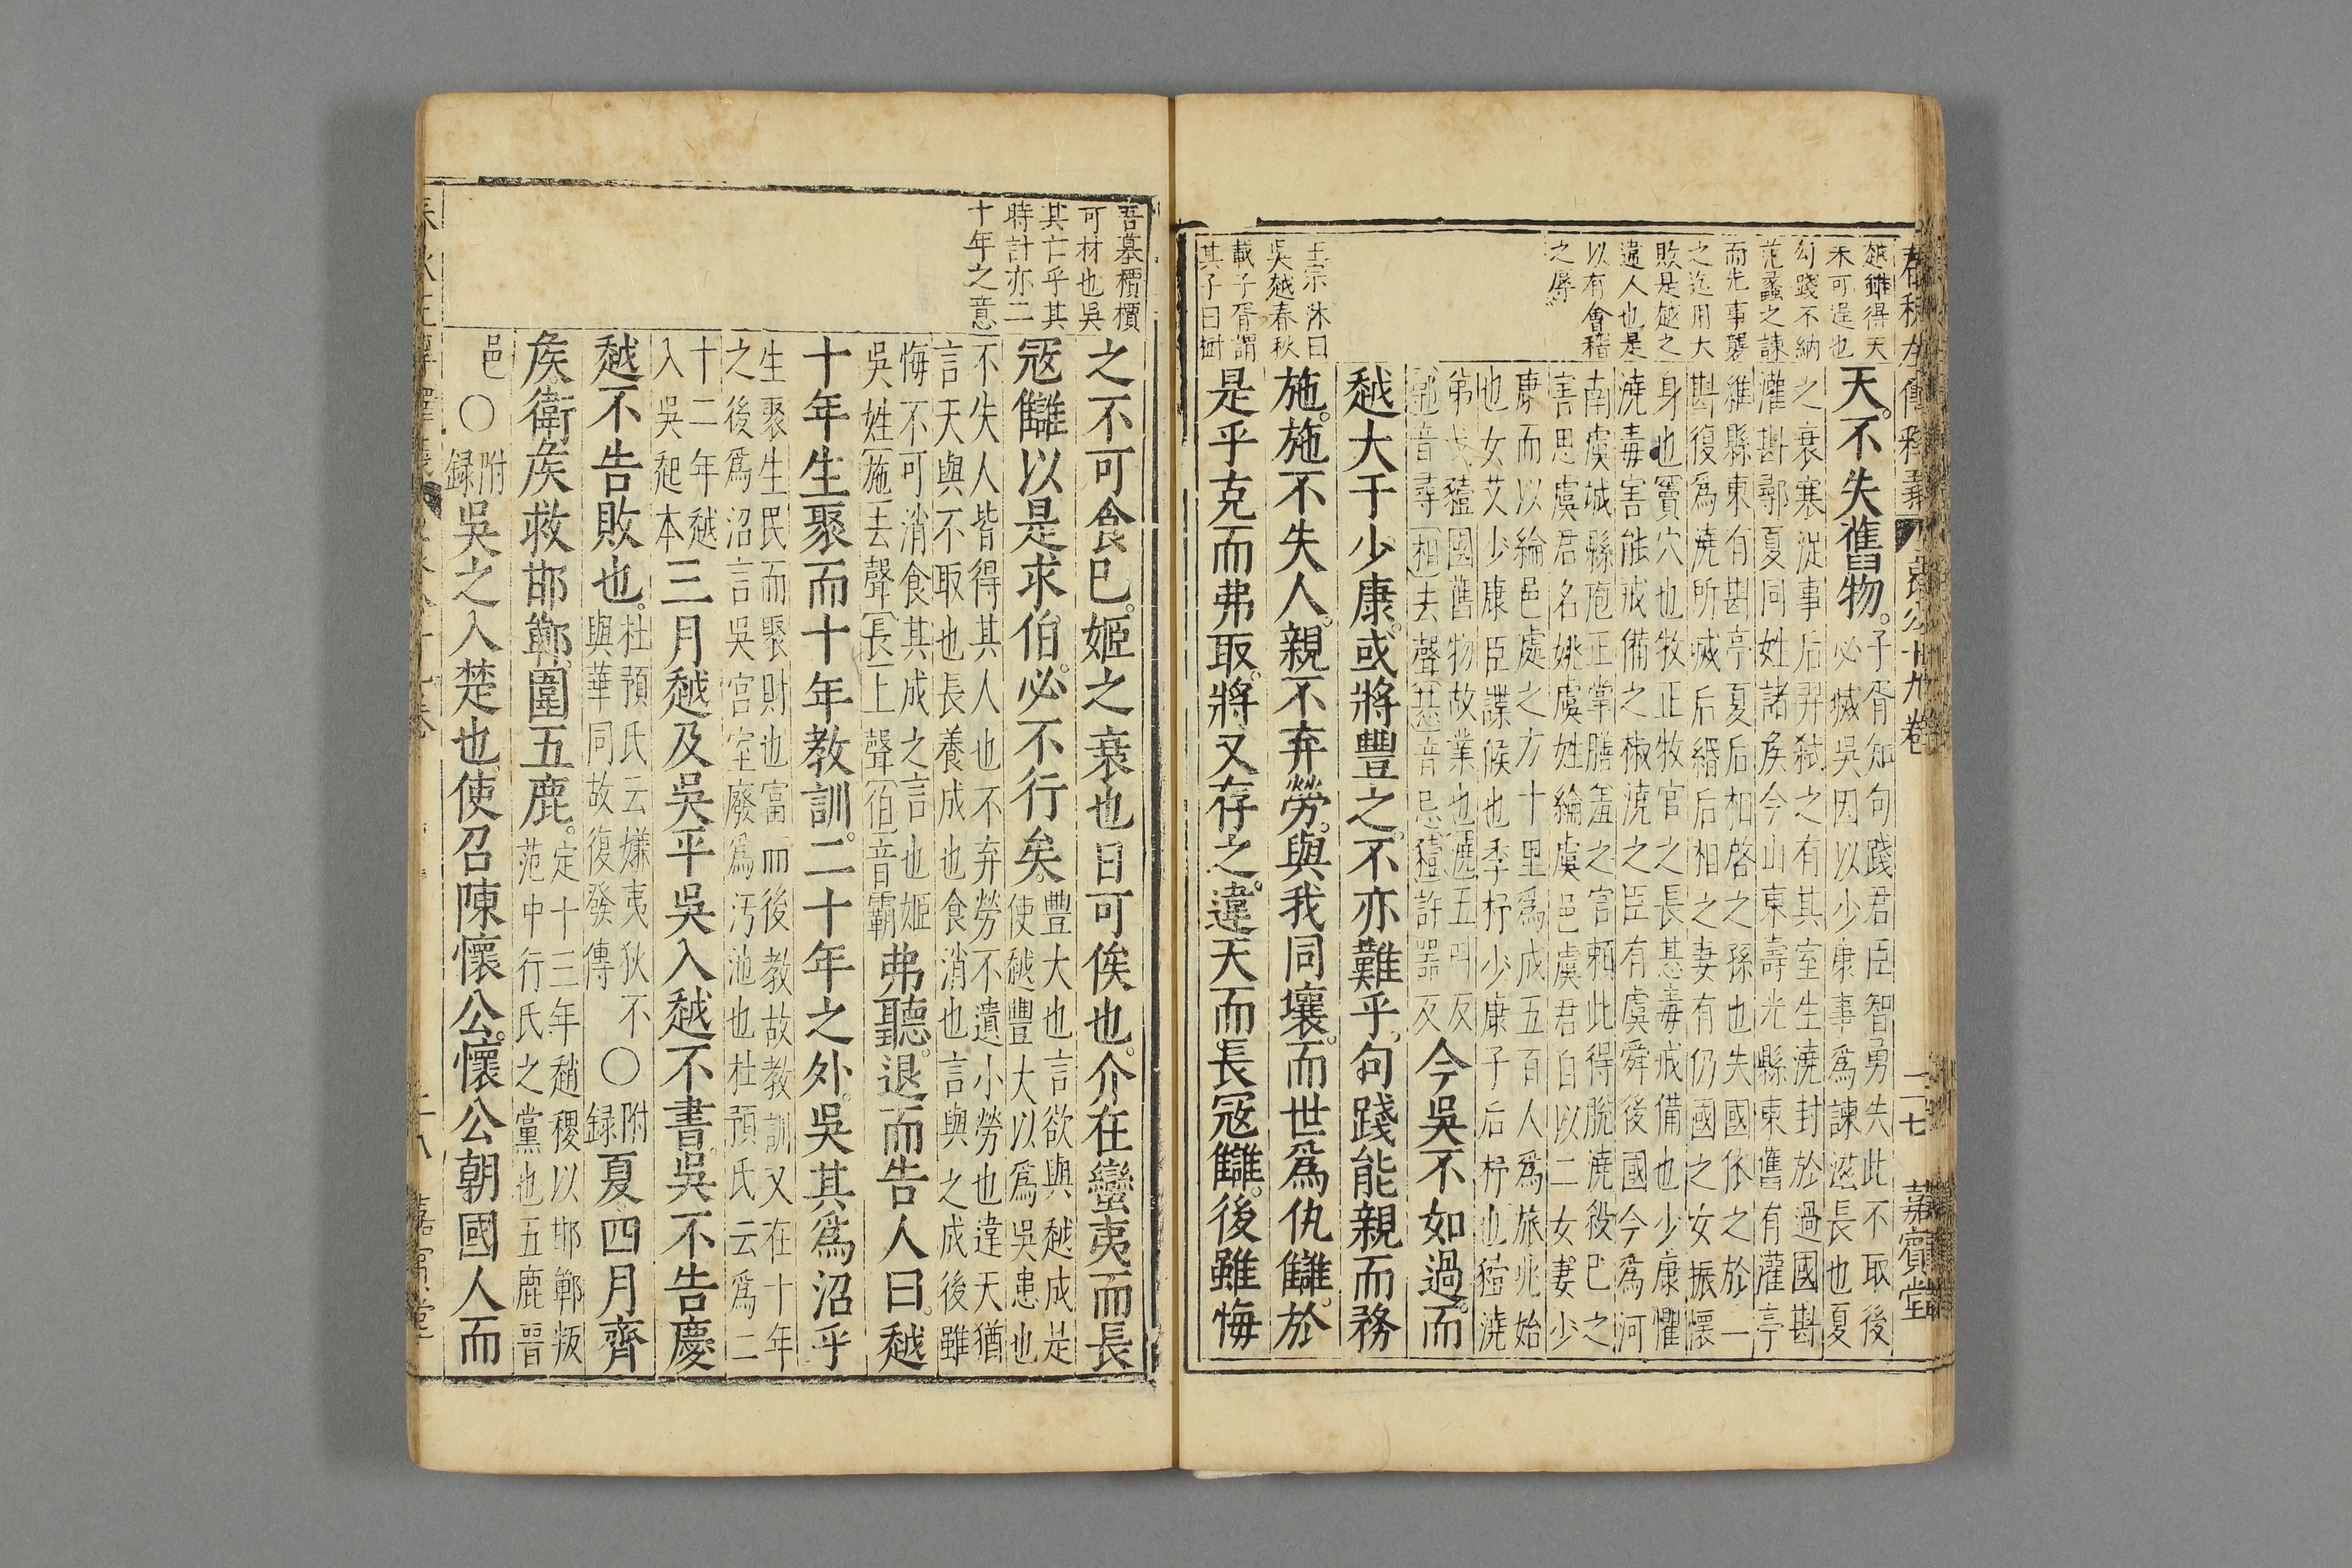 春秋左傳釋義 哀公十九卷 二七 嘉賓堂
越雖得天
不可逞也
勾踐不納
范蠡之諫
而先事襲
之迄用大
敗是越之
違人也是
以有會稽
之辱
王宗沐曰
吳越春秋
載子胥謂
其子曰樹
天。不失舊物。
子胥知句踐君臣智勇失此不取後
必滅吳因以少康事爲諫滋長也夏
之衰寒浞事后羿弒之有其室生澆封於過國斟
灌斟鄩夏同姓諸侯今山東壽光縣東舊有灌亭
濰縣東有斟亭夏后相啓之孫也失國依之於一
斟復爲澆所滅后緡后相之妻有仍國之女振懷
身也竇穴也牧正牧官之長惎毒戒備也少康懼
澆毒害能戒備之椒澆之臣有虞舜後國今爲河
南虞城縣庖正掌膳羞之官賴此得脫澆殺已之
害思虞君名姚虞姓綸虞邑虞君自以二女妻少
康而以綸邑處之方十里爲成五百人爲旅兆始
也女艾少康臣諜候也季杼少康子后杼也豷澆
弟戈豷國舊物故業也澆五叫反
鄩音尋相去聲惎音忌豷許器反
今吳不如過。而
越大于少康。或將豐之。不亦難乎。句踐能親而務
施。施不失人。親不弃勞。與我同壤。而世爲仇讎。於
是乎克而弗取。將又存之。違天而長冦讎。後雖悔
吾墓檟檟
可材也吳
其亡乎其
時計亦二
十年之意
之不可食已。姬之衰也日可俟也。介在蠻夷而長
冦讎以是求伯。必不行矣。
豐大也言欲與越成是
使越豐大以爲吳患也
不失人皆得其人也不弃勞不遺小勞也違天猶
言天與不取也長養成也食消也言與之成後雖
悔不可消食其成之言也姬
吳姓施去聲長上聲伯音霸
弗聽。退而告人曰。越
十年生聚而十年教訓。二十年之外。吳其爲沼乎
生聚生民而聚財也富而後教故教訓又在十年
之後爲沼言吳宮室廢爲汚池也杜預氏云爲二
十二年越
入吳起本
三月越及吳平吳入越不書。吳不告慶
越不告敗也。
杜預氏云嫌夷狄不
與華同故復發傳
〇附
録
夏四月齊
矦。衛矦救邯鄲。圍五鹿。
定十三年趙稷以邯鄲叛
范中行氏之黨也五鹿晉
邑
〇附
録
吳之入楚也。使召陳懷公。懷公朝國人而